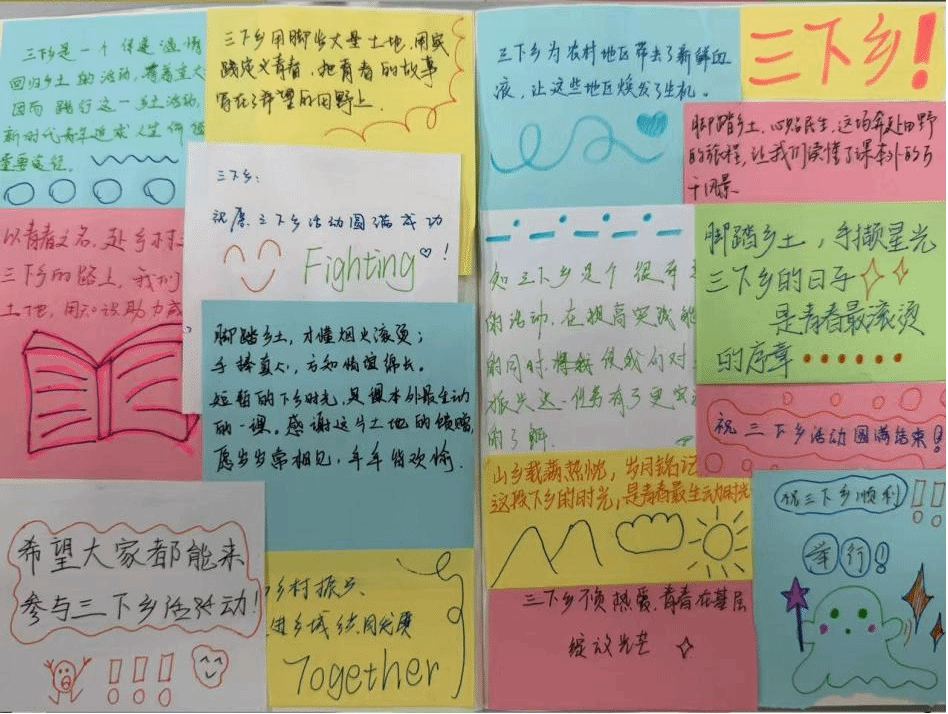 三下乡是一个
回归乡土的活动,
因而践行这一
新时代青年追求人生价值
重要途径.
三下乡用脚步丈量土地,用实
践定义青春,把青春的故事
写在了希望的田野上.
三下乡:
祝愿三下乡活动圆满成功
Fighting !
以青春之名,赴乡村
三下乡的路上,我们
土地,用知识助力
脚踏乡土,才懂烟火滚烫;
手捧真心,方知情谊绵长。
短暂的下乡时光,是课本外最生动
的一课。感谢这片土地的馈赠,
愿岁岁常相见,年年皆欢愉.
希望大家都能来
参与三下乡活动!
!!!
乡村振兴、
进乡城结,同发展
Together
三下乡为农村地区带去了新鲜血
液,让这些地区焕发了生机。
三下乡!
脚踏乡土,心贴民生,这场奔赴田野
的旅程,让我们读懂了课本外的万
千风景.
知三下乡是个很
的活动,在提高实践的
的同时,使我们对
振兴这一任务有了更
的了解.
脚踏乡土,手撷星光
三下乡的日子
是青春最滚烫
的序章••••••
祝三下乡活动圆满结束!
山乡载满热忱,岁月铭记
这段下乡的时光,是青春最生动时光
三下乡不负热爱,青春在基层
绽放光芒
祝三下乡顺利!!
举行!